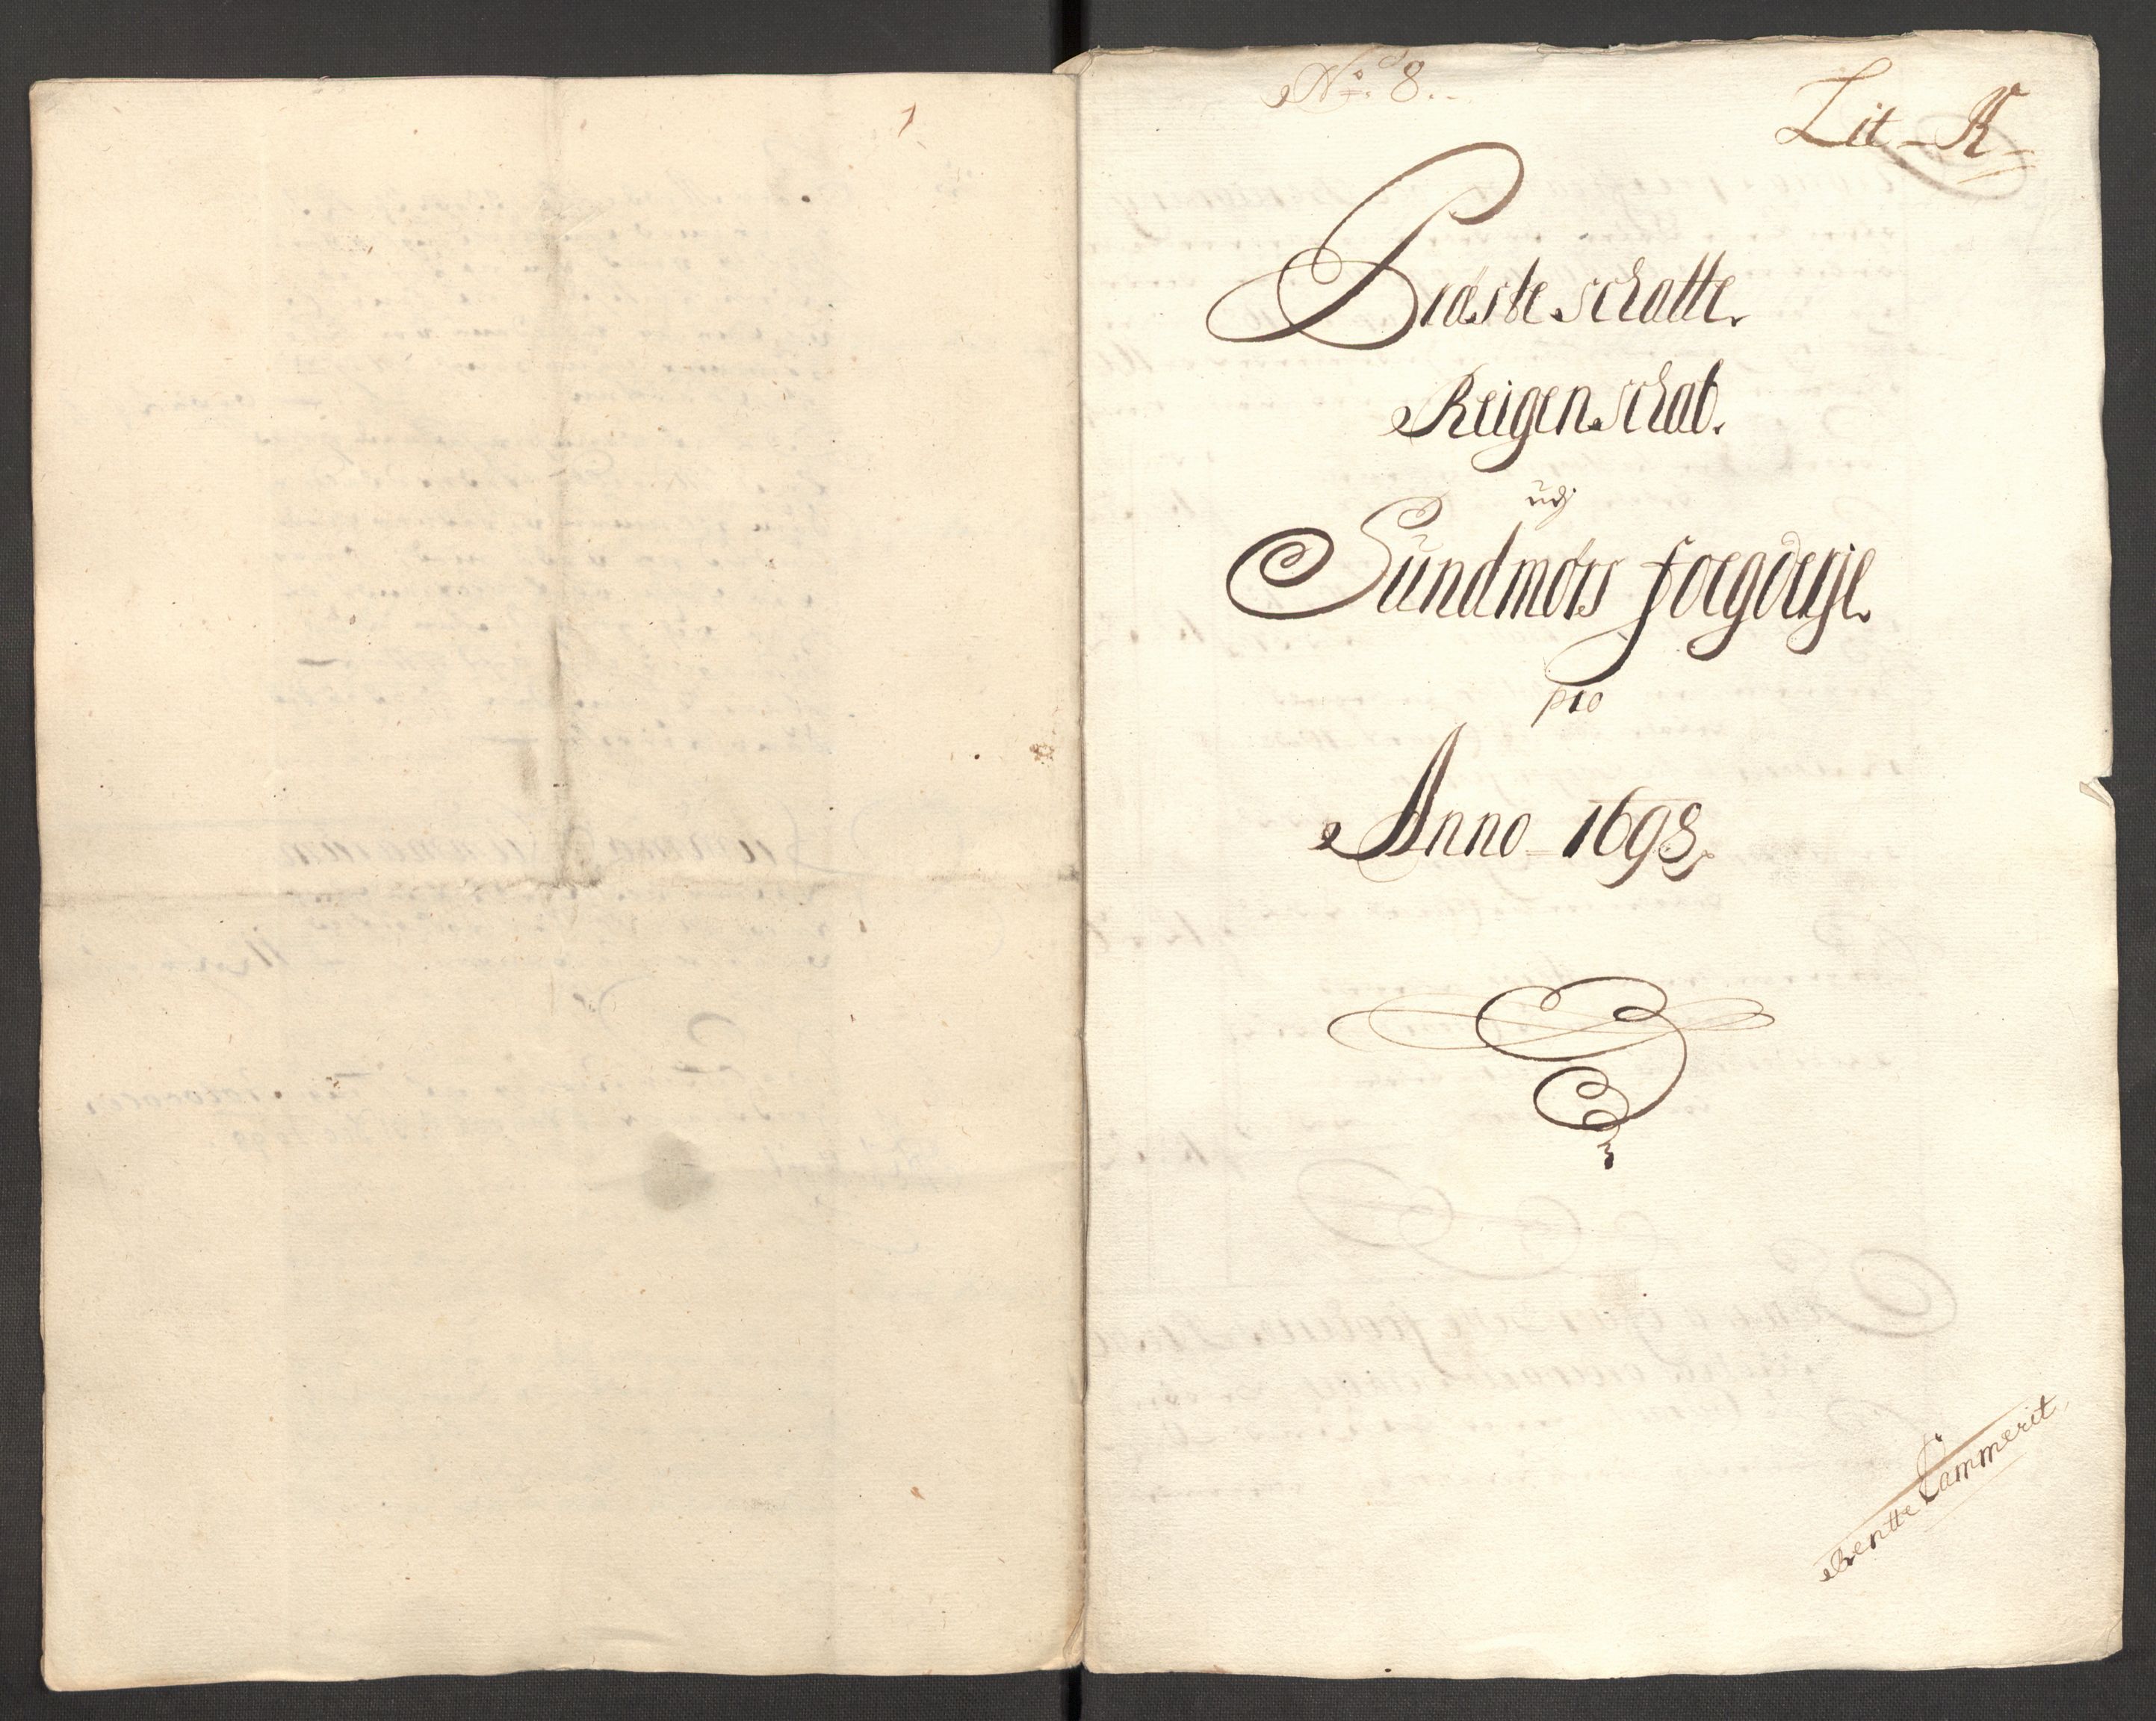 No. 8.
Lit - K
Præste schatte
Reigenschab.
udj
Sundmørs foegderje
pro
Anno 1698
Rentte Cammerit